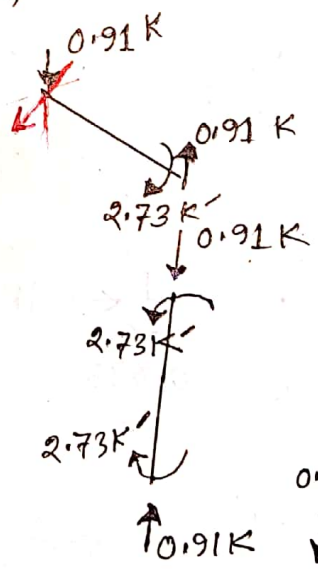 0.91 K
0.91 K
2.73 K'
0.91 K
2.73K'
2.73K'
0.91K
0.